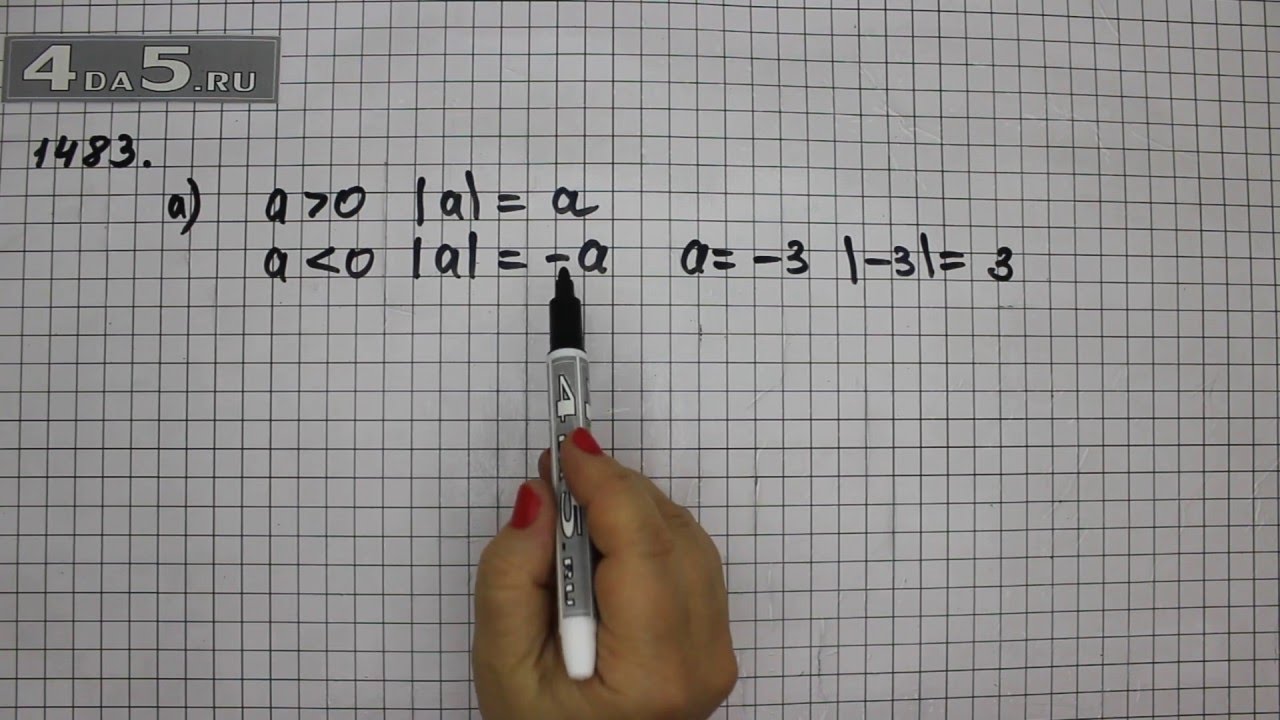 4DA5.RU
1483.
а) a>0 |a| = a
a<0 |a| = -a a= -3 |-3|= 3